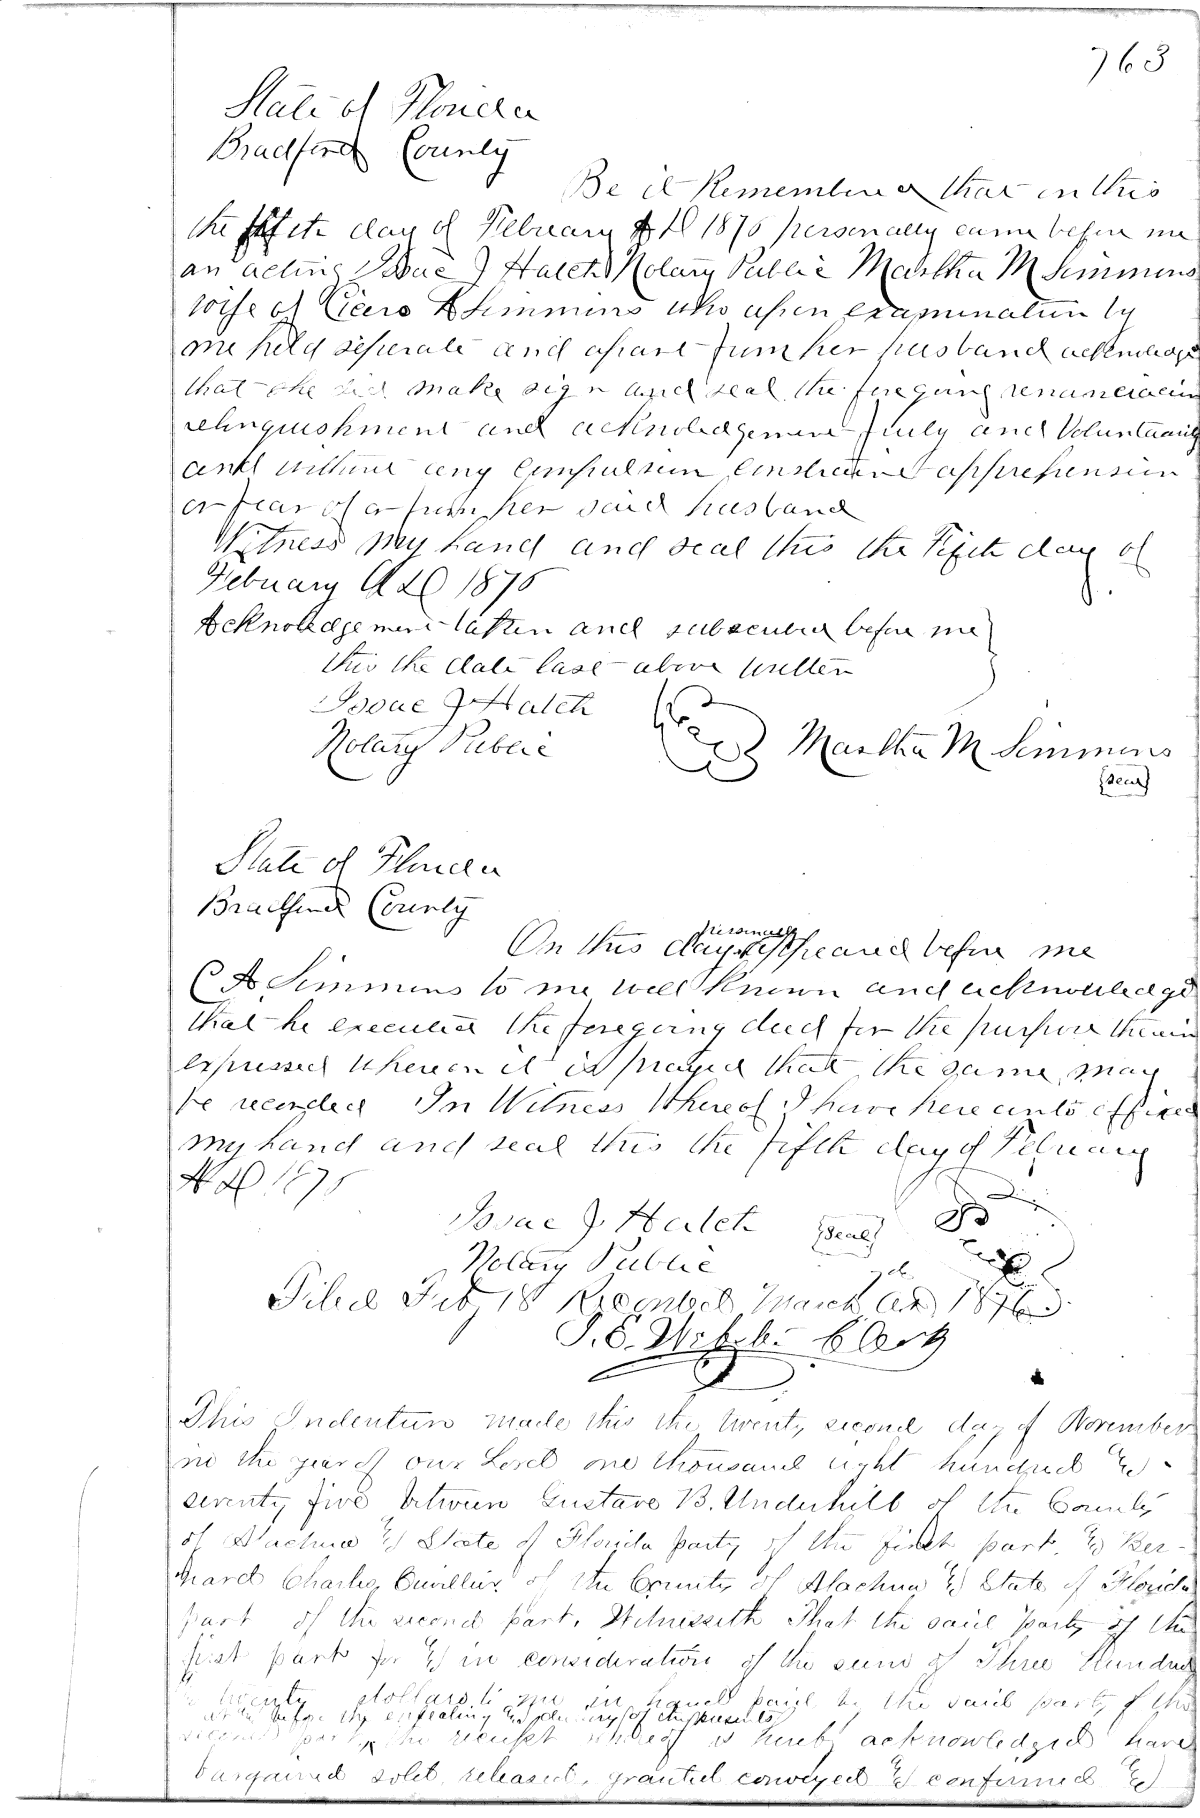 763
State of Florida
Bradford County
Be it Remembered that on this
the fifth day of February A D 1876 personally came before me
an acting Isaac J Hatch Notary Public Martha M Simmons
wife of Cicero A Simmons who upon examination by
me held seperate and apart from her husband acknowledge
that she did make sign and seal the foregoing renunciation
relinquishment and acknoledgement freely and Voluntarily
and without any compulsion constraint apprehension
or fear of or from her said husband
Witness my hand and seal this the Fifth day of
February A D 1876
Acknoledgement taken and subscribed before me
this the date last above written
Isaac J Hatch
Notary Public
Seal
Martha M Simmons
Seal
State of Florida
Bradford County
On this day personally appeared before me
C A Simmons to me well known and acknowledged
that he executed the foregoing deed for the purpose therein
expressed whereon it is prayed that the same may
be recorded In Witness Whereof I have here unto affixed
my hand and seal this the fifth day of February
A D 1876
Isaac J. Hatch Seal
Notary Public
Filed Feby 18 Recorded March 7th AD 1876.
Clerk
This Indenture made this the twenty second day of November
in the year of our Lord one thousand eight hundred &
seventy five between Gustave B. Underhill of the County
of Alachua & State of Florida party of the first part, & Ber-
nard Charles Cuvillier of the County of Alachua & State of Florida
part of the second part, Witnesseth That the said party of the
first part for & in consideration of the sum of Three Hundred
& twenty dollars to me in hand paid by the said party of the
at & before the ensealing & delivery of these presents
second part, the receipt whereof is hereby acknowledged have
bargained sold, released, granted conveyed & confirmed &